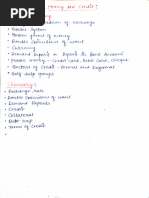 [Money and Credit]
medium of exchange
• Barter System
• Modern forms of money
• Double Coincidence of want
• Currency
• Demand Deposit or Deposit in Bank Account
• Plastic money - Credit card, Debit card, Cheque
• Sectors of Credit - Formal and Informal
• Self-help groups
• Exchange rate
• Double Coincidence of want
• Demand Deposits
• Credit
• Collateral
• Debt trap
• Terms of Credit